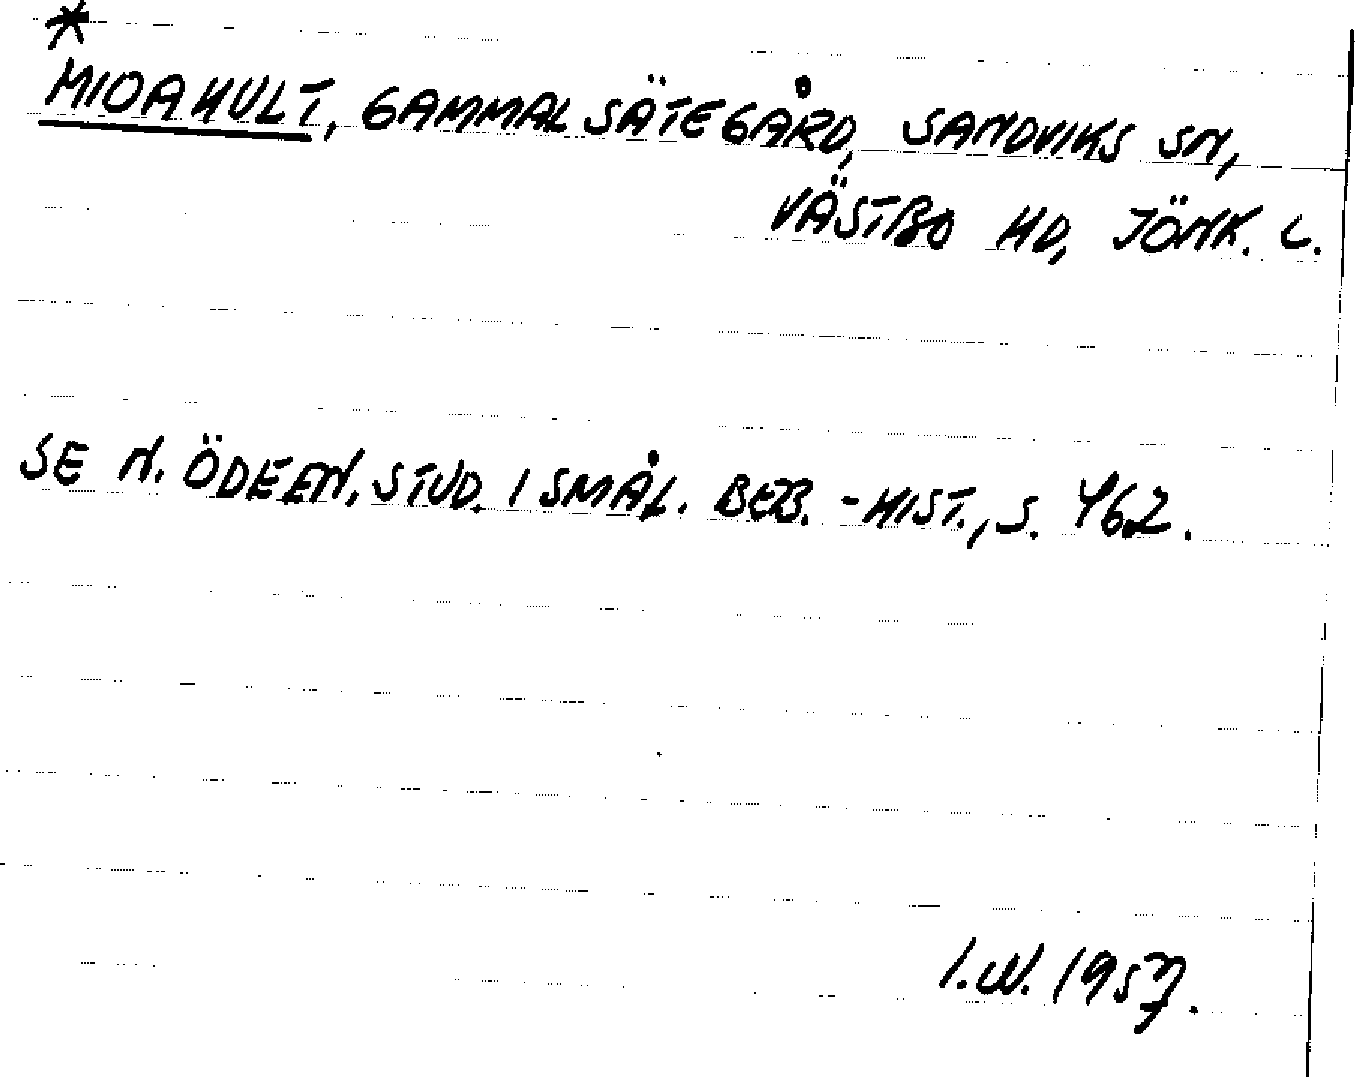 *
MIOAHULT, GAMMAL SÄTEGÅRD, SANDVIKS SN,
VÄSTBO HD, JÖNK. L.
SE N. ÖDEEN, STUD. I SMÅL. BEB.-HIST., S. 462.
I.W. 1957.